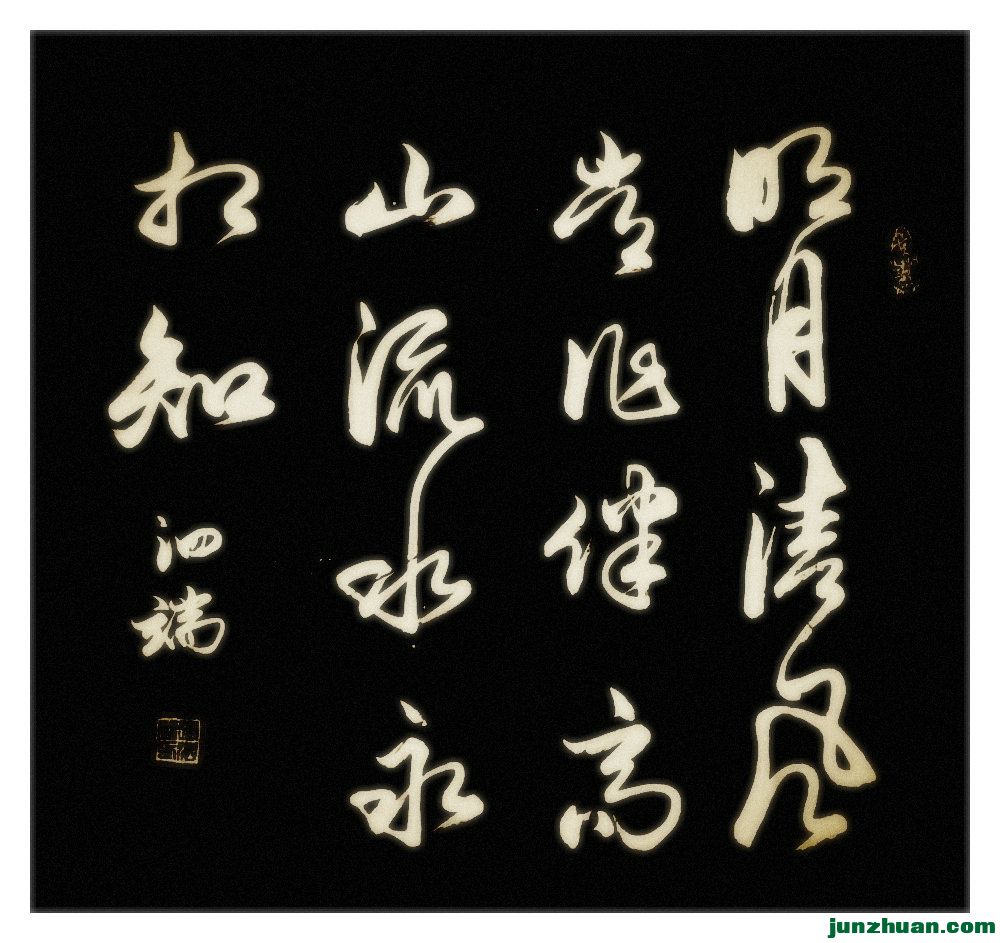 明月清风
常作伴高
山流水永
相知
泗端
junzhuan.com